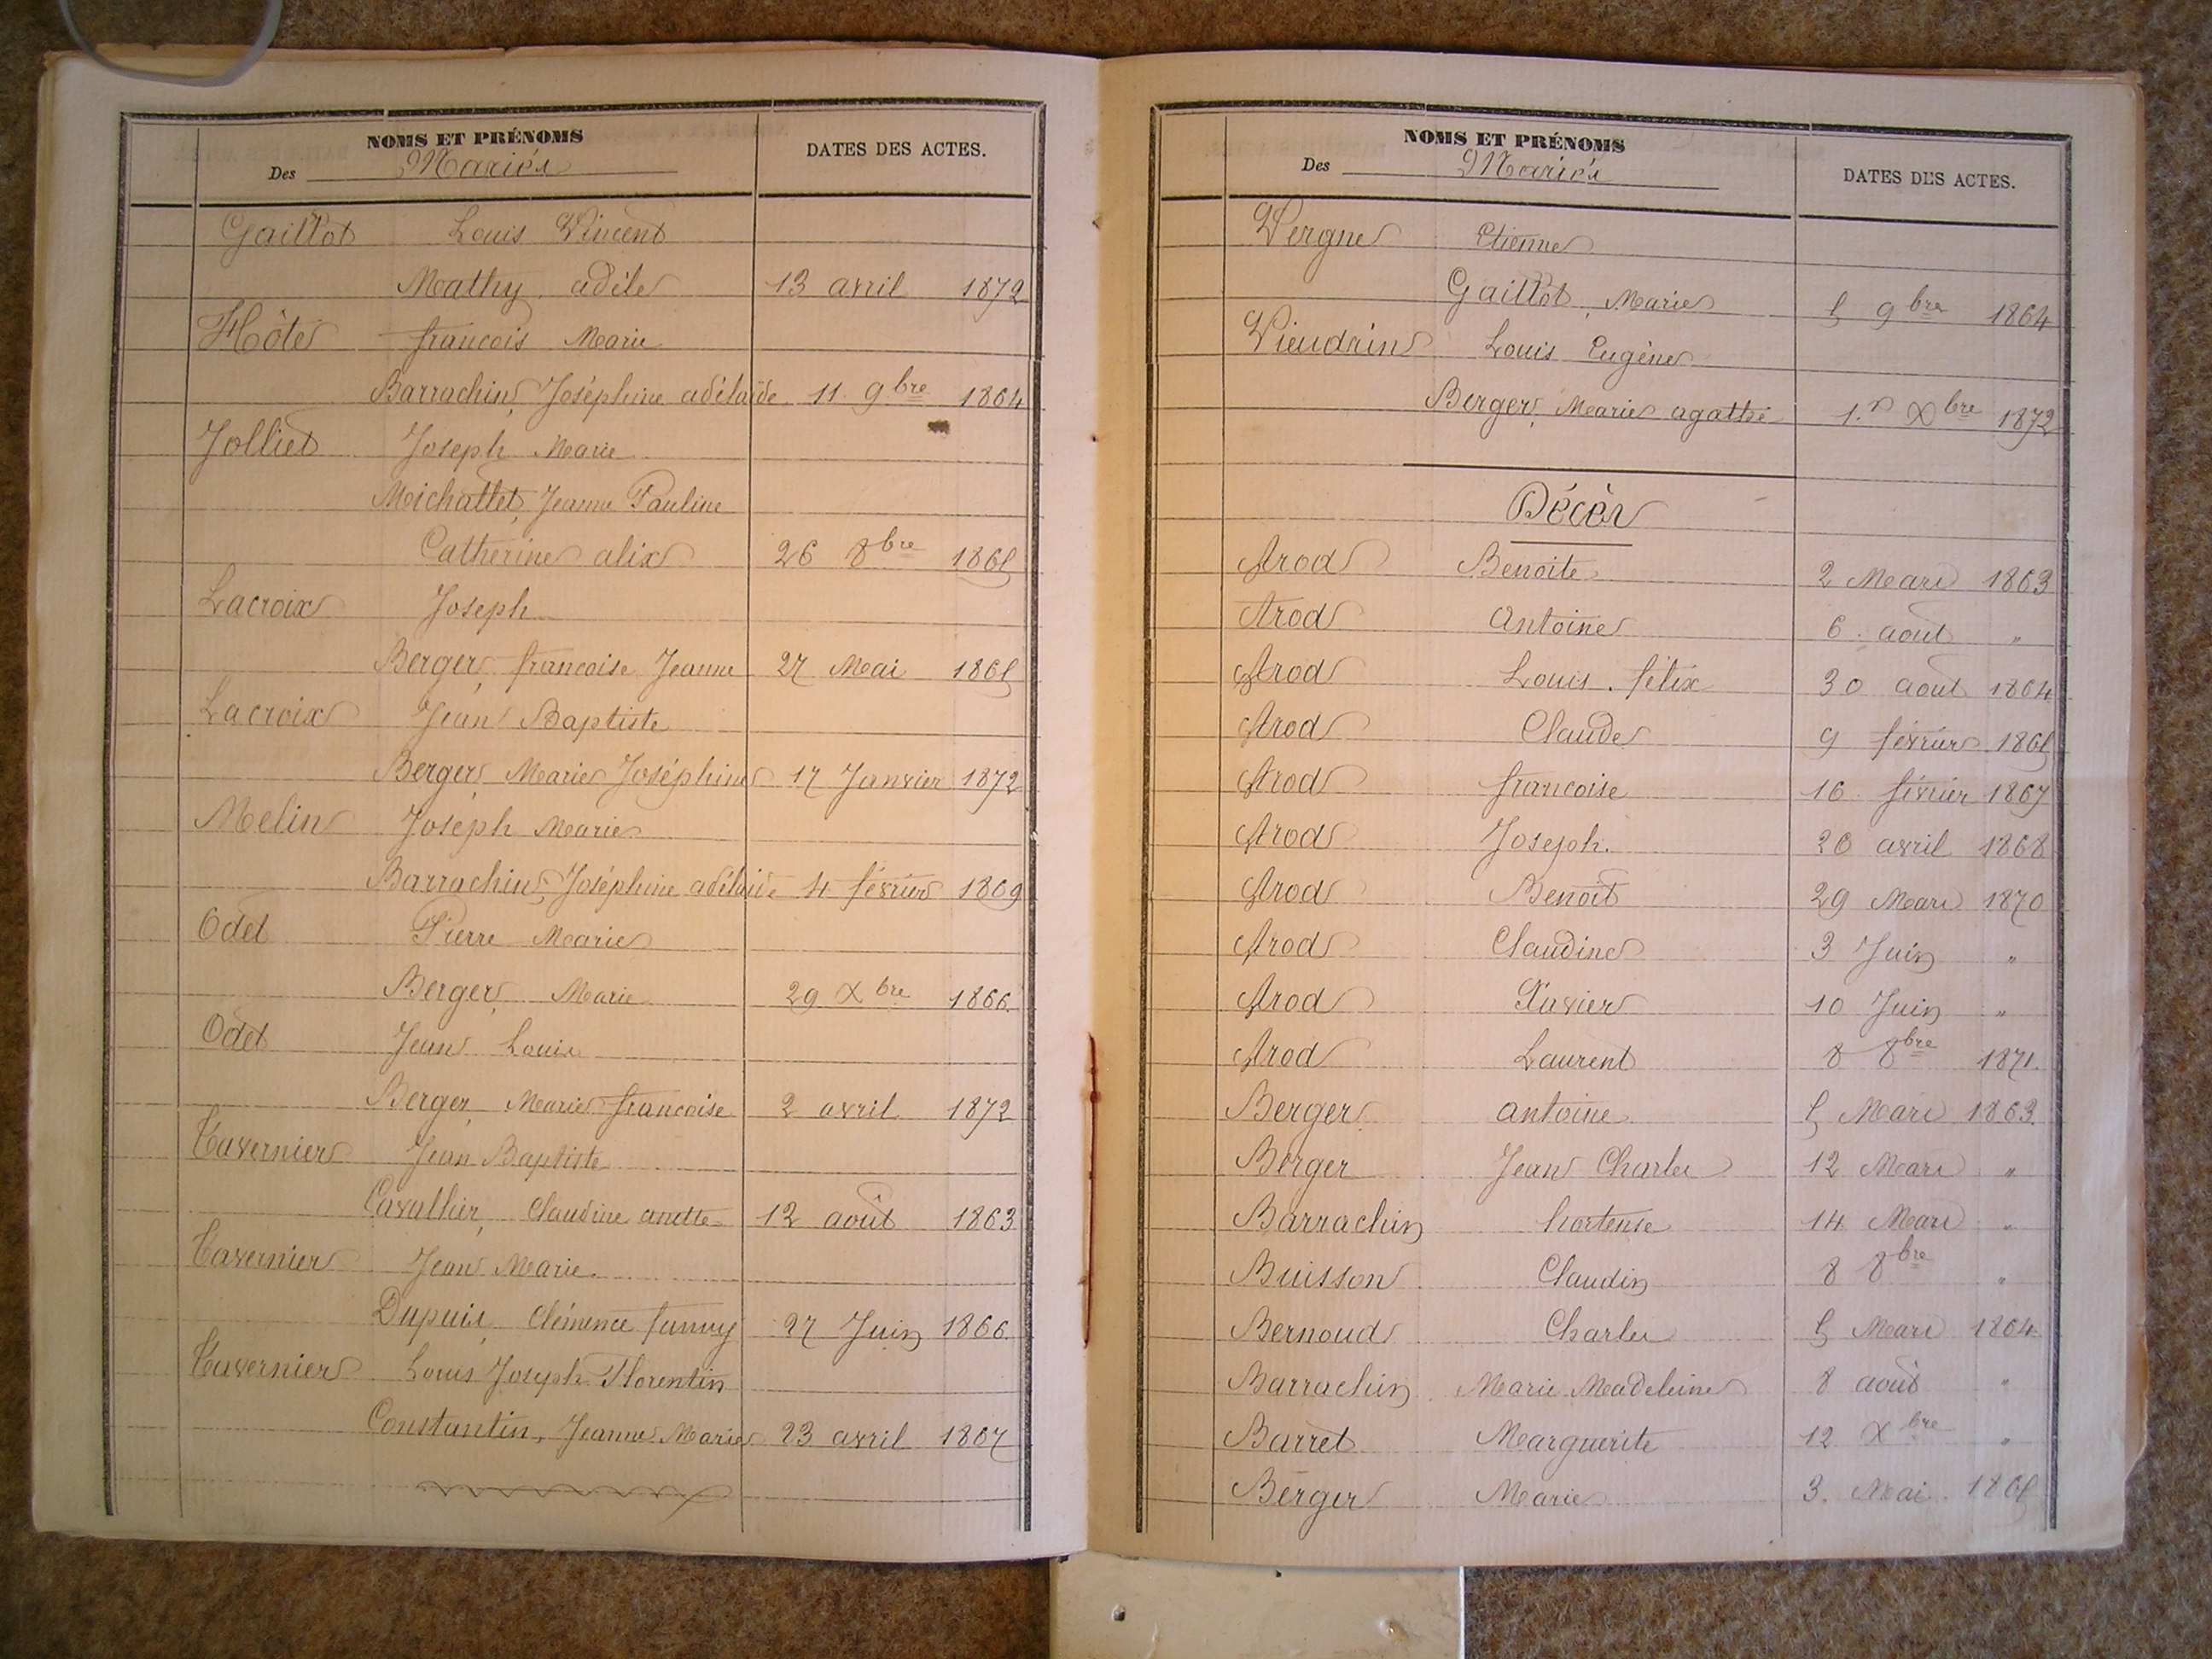 NOMS ET PRÉNOMS
Des Mariés
DATES DES ACTES.
Gaillot Louis Vincent
Mathy, adèle 13 avril 1872
Hôte françois Marie
Barrachin, Joséphine adélaïde 11 9bre 1864
Jolliet Joseph Marie
Michallet, Jeanne Pauline
Catherine alix 26 8bre 1865
Lacroix Joseph
Berger, françoise Jeanne 27 Mai 1865
Lacroix Jean Baptiste
Berger, Marie Joséphine 17 Janvier 1872
Melin Joseph Marie
Barrachin, Joséphine adélaïde 4 février 1869
Odet Pierre Marie
Berger, Marie 29 Xbre 1866.
Odet Jean Louis
Berger, Marie françoise 2 avril 1872
Tavernier Jean Baptiste
Cavallier, Claudine anette 12 août 1863
Tavernier Jean Marie.
Dupuis, Clémence fanny 27 Juin 1866.
Tavernier Louis Joseph Florentin
Constantin, Jeanne Marie 23 avril 1867
NOMS ET PRÉNOMS
Des Mariés
DATES DES ACTES.
Vergne Etienne
Gaillot, Marie 5 9bre 1864
Vieudrin Louis Eugène
Berger, Marie agathe 1.r Xbre 1872
Décès
Arod Benoite 2 Mars 1863
Arod Antoine 6 août "
Arod Louis félix 30 août 1864
Arod Claude 9 février 1865
Arod françoise 16 février 1867
Arod Joseph. 20 avril 1868
Arod Benoît 29 Mars 1870
Arod Claudine 3 Juin "
Arod Xavier 10 Juin "
Arod Laurent 8 8bre 1871.
Berger antoine 5 Mars 1863
Berger Jean Charles 12 Mars "
Barrachin hortense 14 Mars "
Buisson Claudin 8 8bre "
Bernoud Charles 5 Mars 1864
Barrachin Marie Madeleine 8 août "
Barret Marguerite 12 Xbre "
Berger Marie 3. Mai 1865